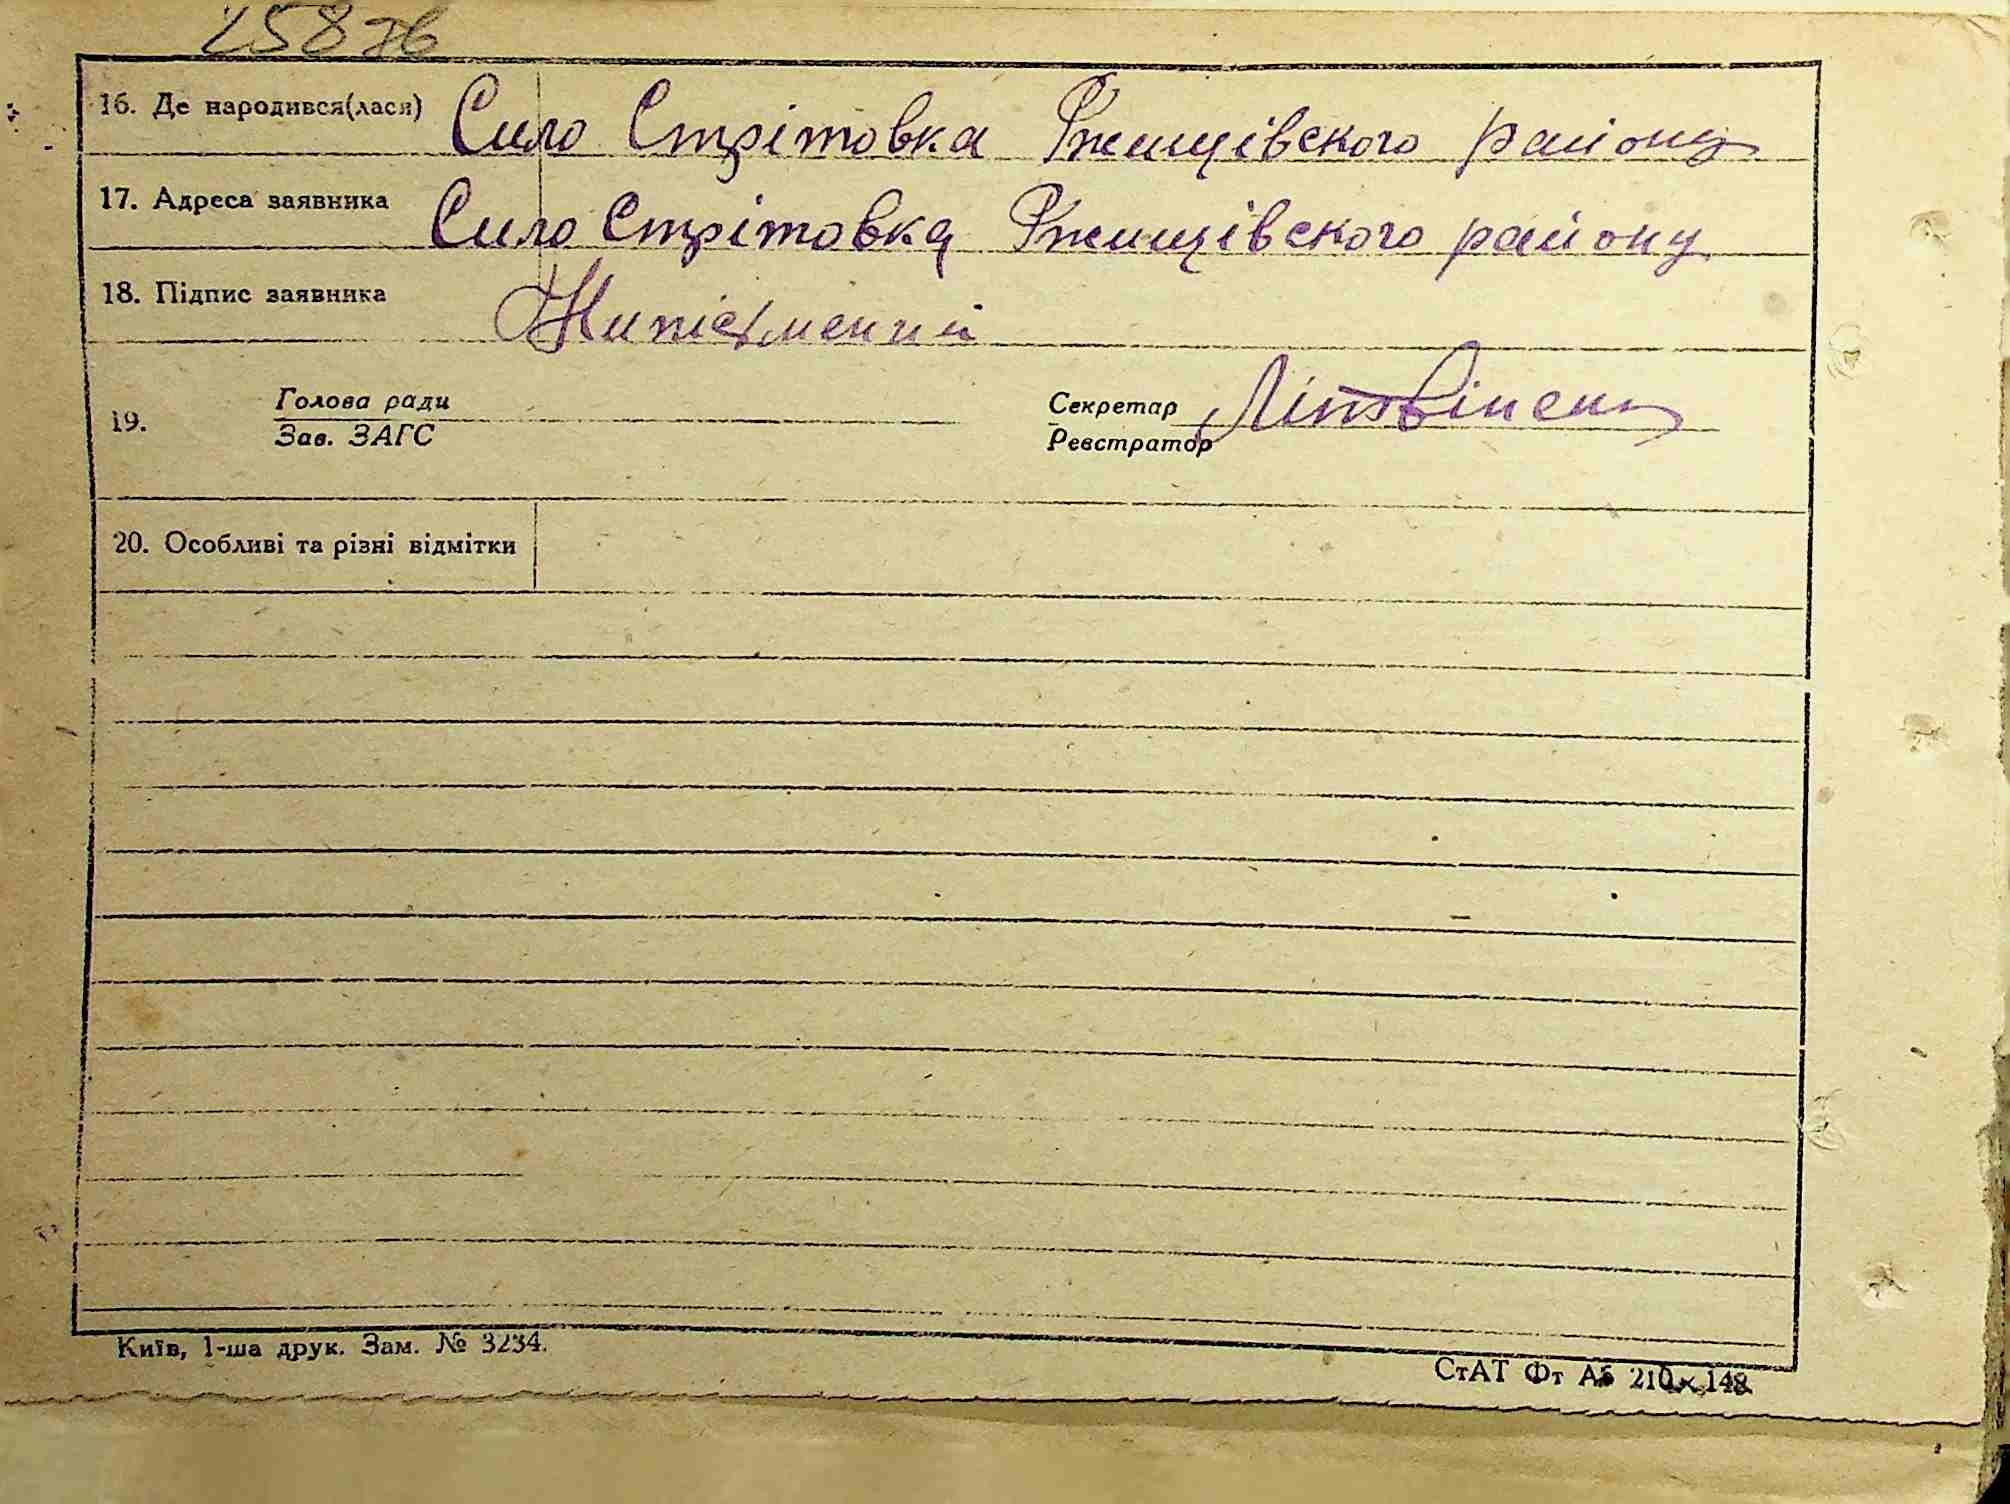 25876
16. Де народився(лася) Сило Стрітовка Ржищівского району
17. Адреса заявника Сило Стрітовка Ржищівского району
18. Підпис заявника Нипісьменний
19. Голова ради Секретар Літвіненко
Зав. ЗАГС Реєстратор
20. Особливі та різні відмітки
Київ, 1-ша друк. Зам. № 3234.
СтАТ Фт А5 210×148